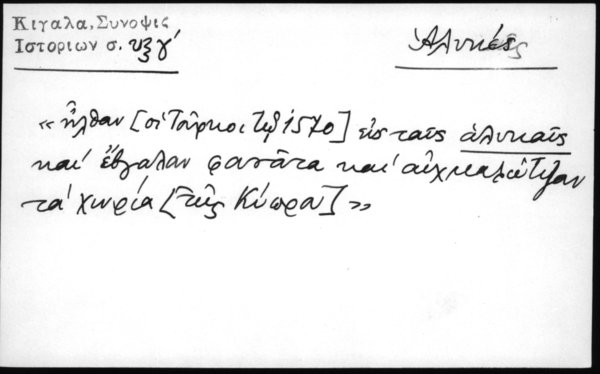 Κιγαλα, Συνοψις
Ιστοριων σ. υξγ'
Ἁλυκές
«ἦλθαν [οἱ Τοῦρκοι τῷ 1570] εἰς ταῖς ἁλυκαῖς
καὶ ἔβγαλαν φασάτα καὶ αἰχμαλώτιζαν
τὰ χωρία [τῆς Κύπρου]»